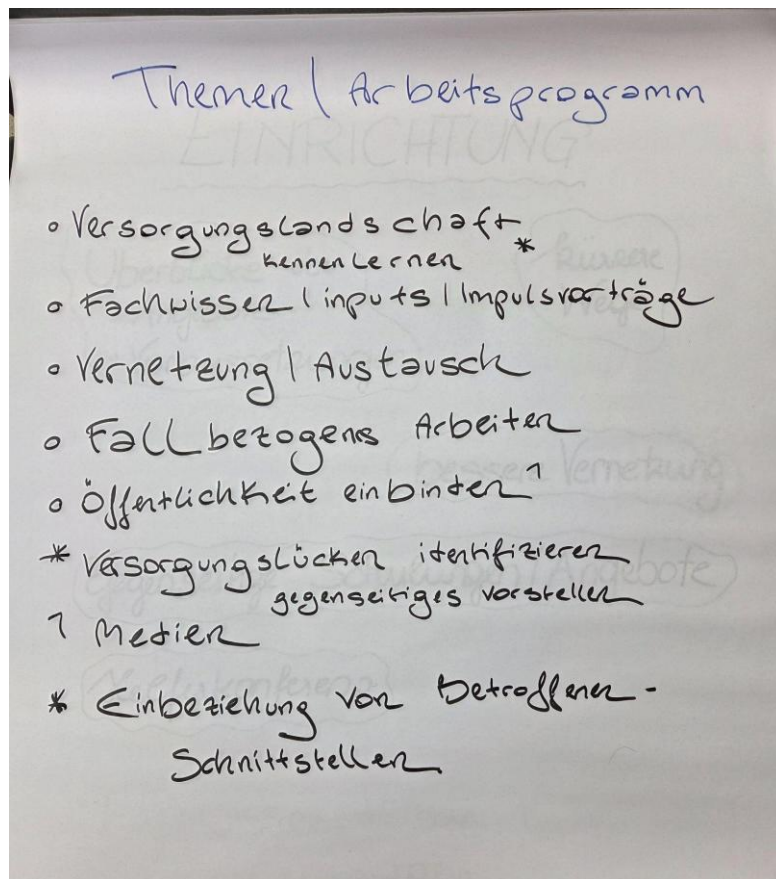 Themen | Arbeitsprogramm
EINRICHTUNG
◦ Versorgungslandschaft *
kennenlernen
◦ Fachwissen | inputs | Impulsvorträge
◦ Vernetzung | Austausch
◦ Fallbezogenes Arbeiten
◦ Öffentlichkeit einbinden ¹
bessere Vernetzung
* Versorgungslücken identifizieren
gegenseitiges vorstellen
¹ Medien
* Einbeziehung von Betroffenen-
Schnittstellen